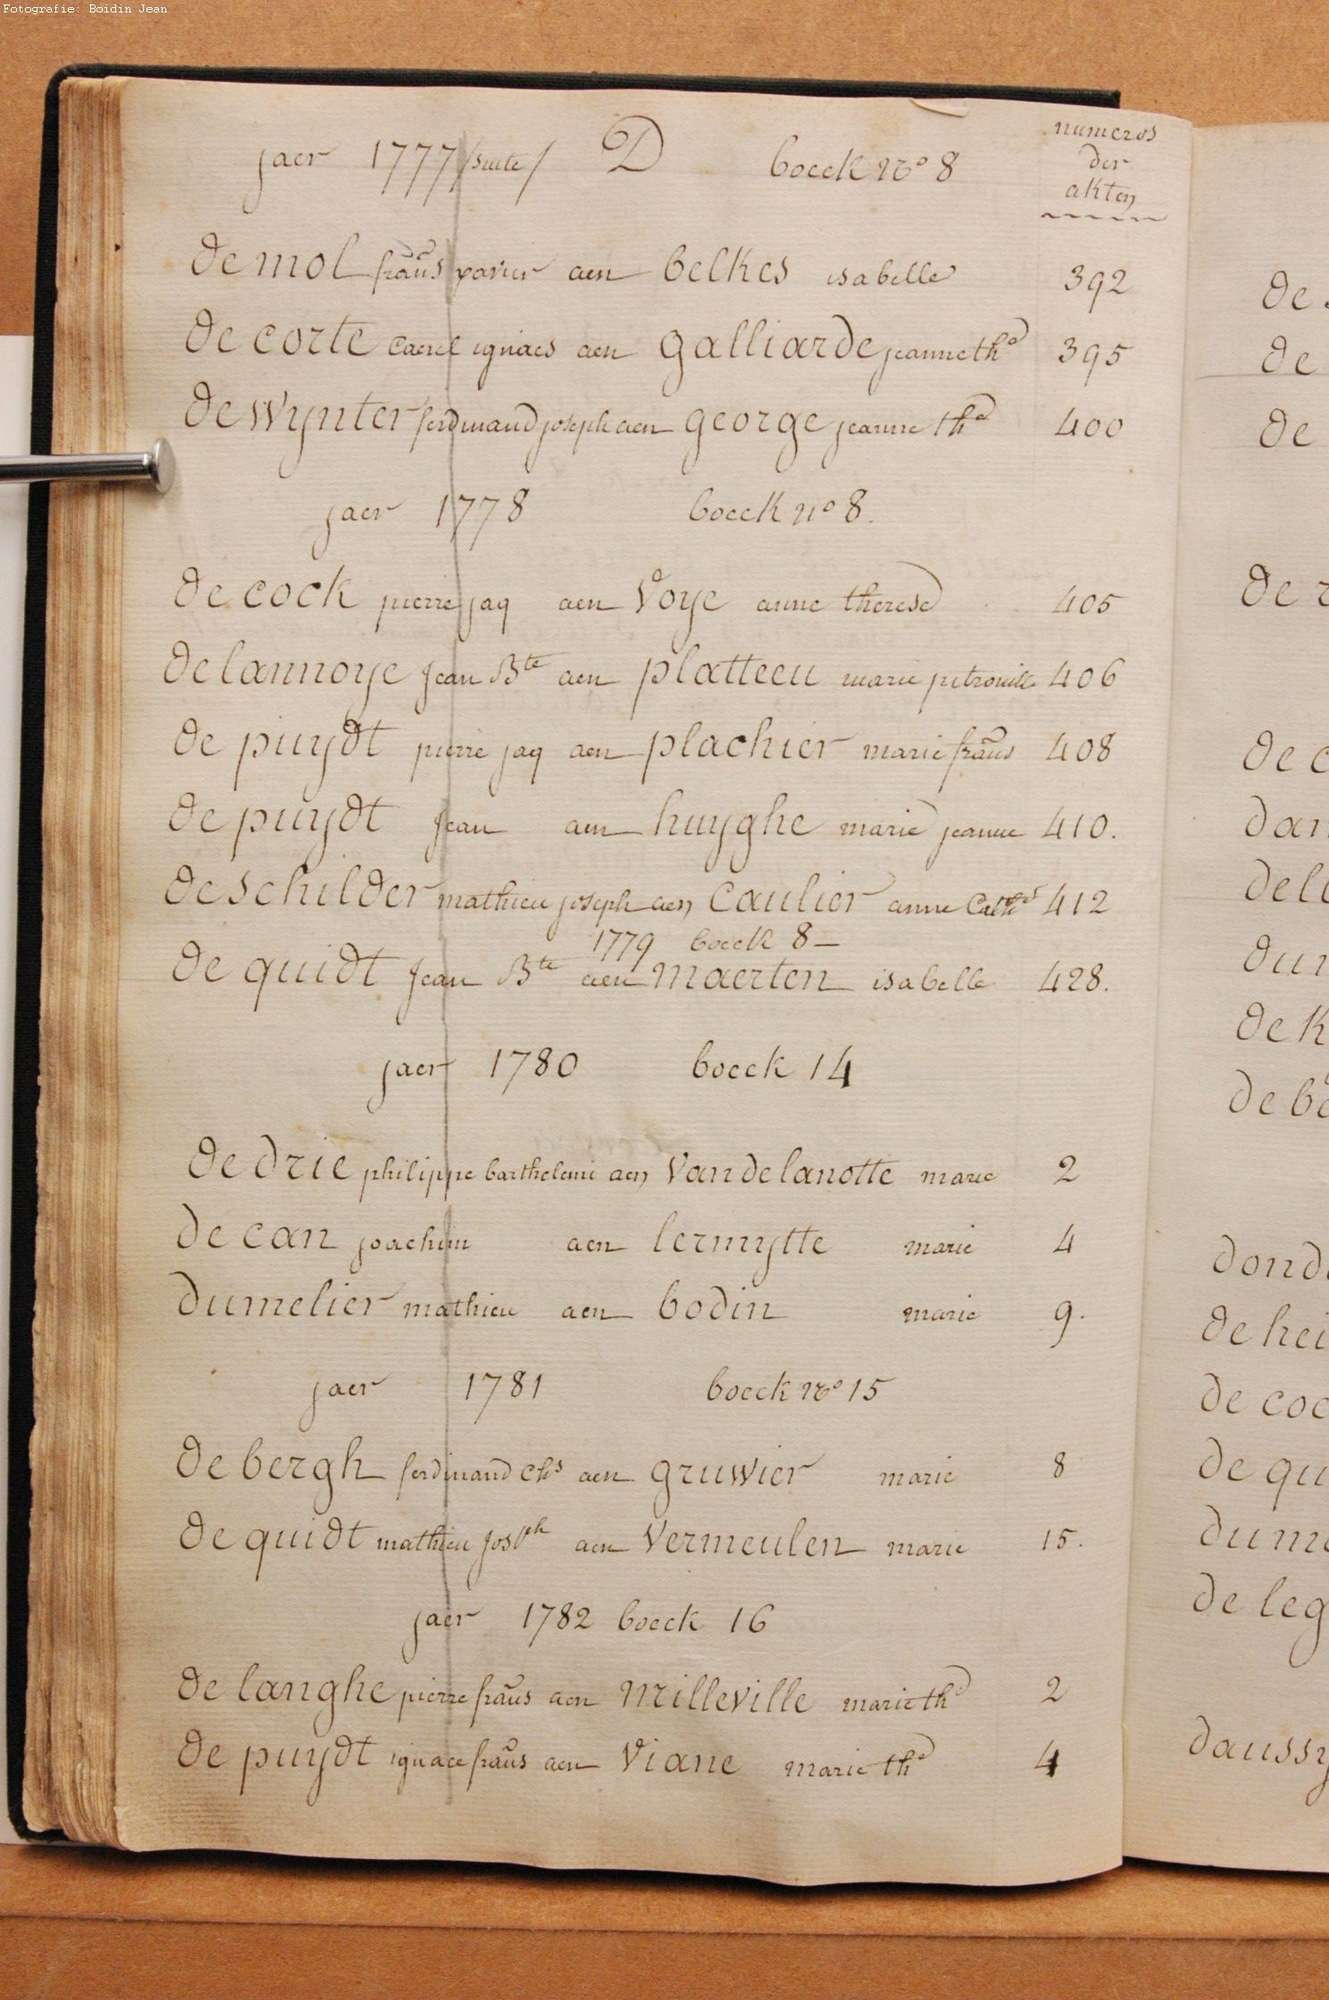 Fotografie: Boidin Jean
jaer 1777 /suite/ D boeck no 8
numeros
der
akten
de mol frans xavier aen belkes isabelle 392
de corte carel ignaes aen galliarde jeanne the 395
de wynter ferdinand joseph aen george jeanne the 400
jaer 1778 boeck no 8.
de cock pierre jaq aen voye anne therese 405
delannoye jean Bte aen platteeu marie petronille 406
de puydt pierre jaq aen plachier marie frans 408
de puydt jean aen huyghe marie jeanne 410.
de schilder mathieu joseph aen caulier anne cath 412
1779 boeck 8
de quidt jean Bte aen maerten isabelle 428.
jaer 1780 boeck 14
de drie philippe barthelemi aen vandelanotte marie 2
de can joachim aen lermytte marie 4
dumelier mathieu aen bodin marie 9.
jaer 1781 boeck no 15
de bergh ferdinand chs aen gruwier marie 8
de quidt mathieu josph aen vermeulen marie 15.
jaer 1782 boeck 16
de langhe pierre frans aen milleville marie the 2
de puydt ignace frans aen viane marie the 4
de
de
de
de
de
dan
del
dun
de k
de b
dond
de hei
de coc
de qu
dum
de leg
daussy